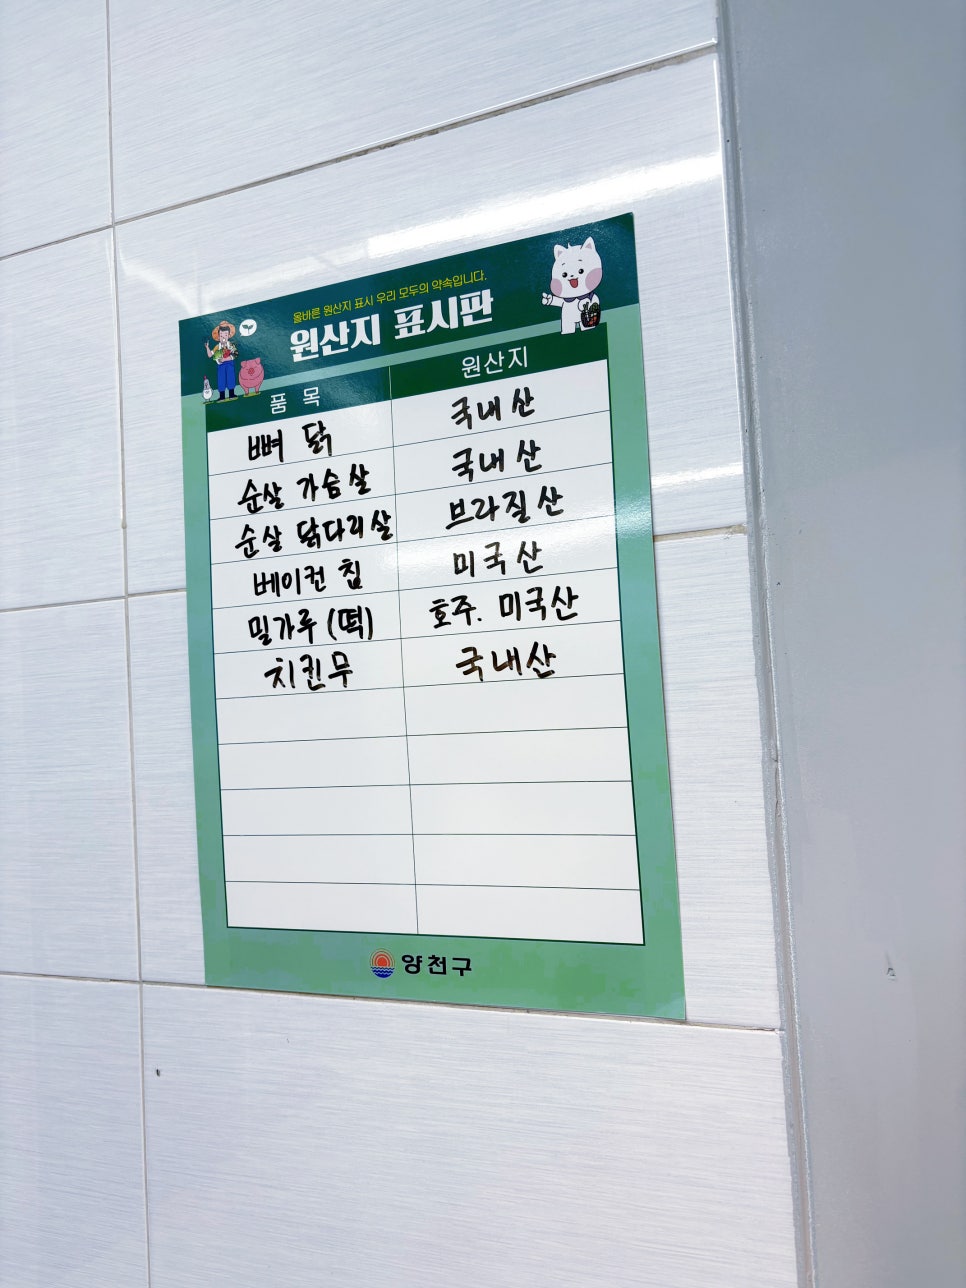 올바른 원산지 표시 우리 모두의 약속입니다.
원산지 표시판
품 목 원산지
뼈 닭 국내산
순살 가슴살 국내산
순살 닭다리살 브라질산
베이컨 칩 미국산
밀가루 (떡) 호주. 미국산
치킨무 국내산
양천구